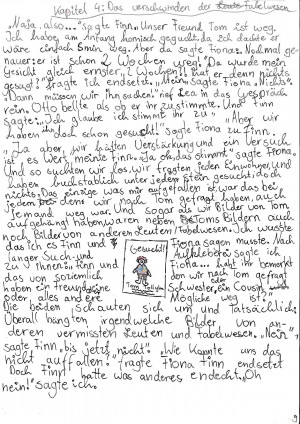 Kapitel 4: Das verschwinden der Fabelwesen
"Naja, also..." sagte Finn. "Unser Freund Tom ist weg.
Ich habe am Anfang komisch geguckt, da ich dachte er
wäre einfach Smin weg. Aber da sagte Fiona: "Nochmal ge-
nauer: er ist schon 2 Wochen weg!" Da wurde mein
Gesicht gleich ernster, "2 Wochen? Hat er denn nichts
gesagt?" fragte ich endsetzt. "Nein" sagte Fiona, "Nichts"
"Dann müssen wir ihn suchen!" rief Lea in das Gespräch
rein. Otto bellte als ob er ihr zustimmte. Und Finn
sagte: "Ich glaube ich stimmt ihr zu" "Aber wir
haben ihn doch schon gesucht!" sagte Fiona zu Finn.
"Ja aber, wir hätten Verstärkung und ein Versuch
ist es Wert" meinte Finn. "Ja oh, das stimmt" sagte Fiona.
Und so suchten wir los, wir fragten jeden Einwohner und
haben buchstäblich unter jedem Stein gesucht; doch
nichts. Das einzige was mir aufgefallen ist war das bei
jedem bei dem wir nach Tom gefragt haben, auch
jemand weg war. Und sogar als wir Bilder von Tom
aufgehängt haben, waren neben Toms Bildern auch
noch Bilder von anderen Leuten/Fabelwesen. Ich wusste
das ich es Finn und Fiona sagen musste. Nach
langer Such- und Aufklebere sagte ich
zu V ihnen: "Finn und Fiona... habt ihr bemerkt
das von so ziemlich den wir nach Tom gefragt
haben ein freund, eine Schwester, ein Cousin
oder alles andere Mögliche weg ist?"
Gesucht!
Die beiden schauten sich um und Tatsächlich:
Überal hangen irgendwelche Bilder von an-
deren vermissten Leuten und tabelwesen. "Nein",
sagte Finn, "bis jetzt nicht". "Wie konnte uns das
nicht auffallen?" fragte Fiona Finn endsetzt
Doch Finn hatte was anderes endeckt, "Oh
nein!" sagte ich.
9